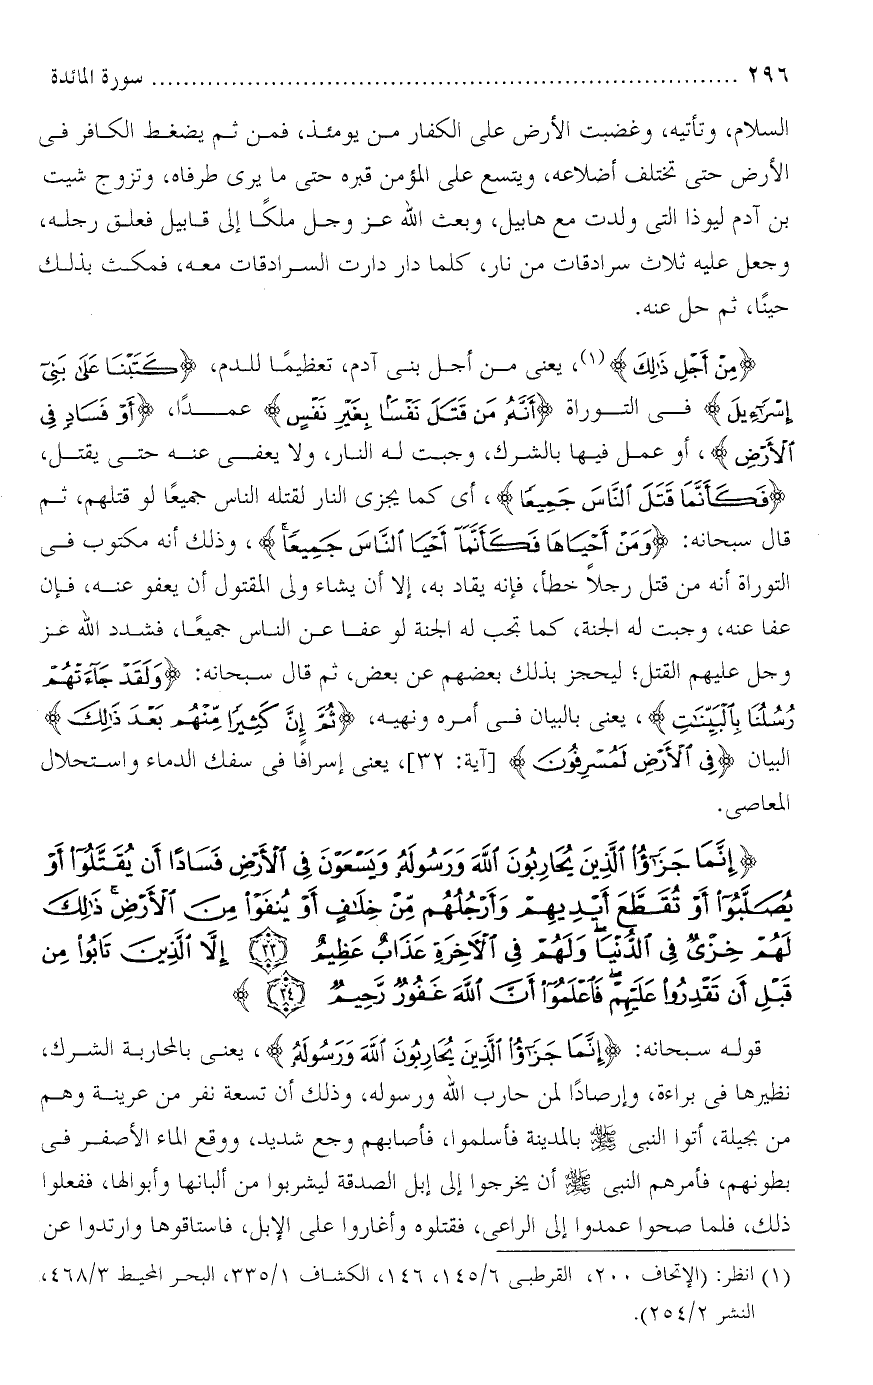 ٢٩٦ ........................................................................... سورة المائدة
السلام، وتأتيه، وغضبت الأرض على الكفار من يومئذ، فمن ثم يضغط الكافر فى
الأرض حتى تختلف أضلاعه، ويتسع على المؤمن قبره حتى ما يرى طرفاه، وتزوج شيث
بن آدم ليوذا التى ولدت مع هابيل، وبعث الله عز وجل ملكًا إلى قابيل فعلق رجله،
وجعل عليه ثلاث سرادقات من نار، كلما دار دارت السرادقات معه، فمكث بذلك
حينًا، ثم حل عنه.
﴿مِنْ أَجْلِ ذَٰلِكَ﴾(١)، يعنى من أجل بنى آدم، تعظيمًا للدم، ﴿كَتَبْنَا عَلَىٰ بَنِيٓ
إِسْرَٰٓءِيلَ﴾ فى التوراة ﴿أَنَّهُۥ مَن قَتَلَ نَفْسًۢا بِغَيْرِ نَفْسٍ﴾ عمدًا، ﴿أَوْ فَسَادٍ فِى
ٱلْأَرْضِ﴾، أو عمل فيها بالشرك، وجبت له النار، ولا يعفى عنه حتى يقتل،
﴿فَكَأَنَّمَا قَتَلَ ٱلنَّاسَ جَمِيعًا﴾، أى كما يجزى النار لقتله الناس جميعًا لو قتلهم، ثم
قال سبحانه: ﴿وَمَنْ أَحْيَاهَا فَكَأَنَّمَآ أَحْيَا ٱلنَّاسَ جَمِيعًا ۚ﴾، وذلك أنه مكتوب فى
التوراة أنه من قتل رجلاً خطأ، فإنه يقاد به، إلا أن يشاء ولى المقتول أن يعفو عنه، فإن
عفا عنه، وجبت له الجنة، كما تجب له الجنة لو عفا عن الناس جميعًا، فشدد الله عز
وجل عليهم القتل؛ ليحجز بذلك بعضهم عن بعض، ثم قال سبحانه: ﴿وَلَقَدْ جَآءَتْهُمْ
رُسُلُنَا بِٱلْبَيِّنَٰتِ﴾، يعنى بالبيان فى أمره ونهيه، ﴿ثُمَّ إِنَّ كَثِيرًا مِّنْهُم بَعْدَ ذَٰلِكَ﴾
البيان ﴿فِى ٱلْأَرْضِ لَمُسْرِفُونَ﴾ [آية: ٣٢]، يعنى إسرافًا فى سفك الدماء واستحلال
المعاصى.
﴿إِنَّمَا جَزَٰٓؤُا۟ ٱلَّذِينَ يُحَارِبُونَ ٱللَّهَ وَرَسُولَهُۥ وَيَسْعَوْنَ فِى ٱلْأَرْضِ فَسَادًا أَن يُقَتَّلُوٓا۟ أَوْ
يُصَلَّبُوٓا۟ أَوْ تُقَطَّعَ أَيْدِيهِمْ وَأَرْجُلُهُم مِّنْ خِلَٰفٍ أَوْ يُنفَوْا۟ مِنَ ٱلْأَرْضِ ۚ ذَٰلِكَ
لَهُمْ خِزْىٌ فِى ٱلدُّنْيَا ۖ وَلَهُمْ فِى ٱلْأَخِرَةِ عَذَابٌ عَظِيمٌ ٣٣ إِلَّا ٱلَّذِينَ تَابُوا۟ مِن
قَبْلِ أَن تَقْدِرُوا۟ عَلَيْهِمْ ۖ فَٱعْلَمُوٓا۟ أَنَّ ٱللَّهَ غَفُورٌ رَّحِيمٌ ٣٤﴾
قوله سبحانه: ﴿إِنَّمَا جَزَٰٓؤُا۟ ٱلَّذِينَ يُحَارِبُونَ ٱللَّهَ وَرَسُولَهُۥ﴾، يعنى بالمحاربة الشرك،
نظيرها فى براءة، وإرصادًا لمن حارب الله ورسوله، وذلك أن تسعة نفر من عرينة وهم
من بجيلة، أتوا النبى ﷺ بالمدينة فأسلموا، فأصابهم وجع شديد، ووقع الماء الأصفر فى
بطونهم، فأمرهم النبى ﷺ أن يخرجوا إلى إبل الصدقة ليشربوا من ألبانها وأبوالها، ففعلوا
ذلك، فلما صحوا عمدوا إلى الراعى، فقتلوه وأغاروا على الإبل، فاستاقوها وارتدوا عن
(١) انظر: (الإتحاف ٢٠٠، القرطبى ١٤٥/٦، ١٤٦، الكشاف ٣٣٥/١، البحر المحيط ٤٦٨/٣،
النشر ٢٥٤/٢).